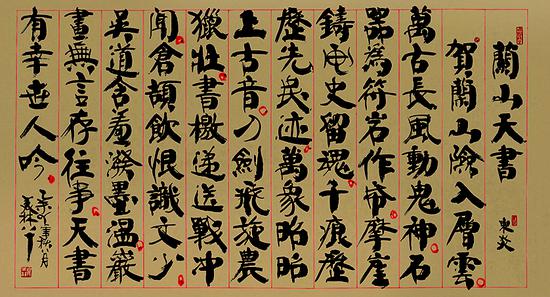 蘭山天書
賀蘭山險入層雲
萬古長風動鬼神石
器為符岩作帋摩崖
鑄史留魂千痕歷
歷先民迹萬象昭昭
上古音刀劍農
獵壯書檄遞送戰冲
聞倉頡飲恨識文少
吳道含羞潑墨溫巖
畫無言存往事天書
有幸世人吟